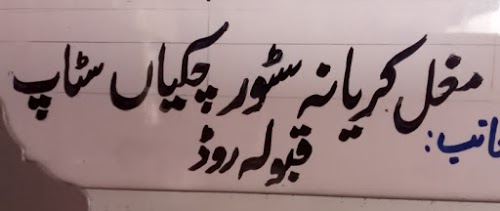 مغل کریانہ سٹور چکیاں سٹاپ
جانب:
قبولہ روڈ